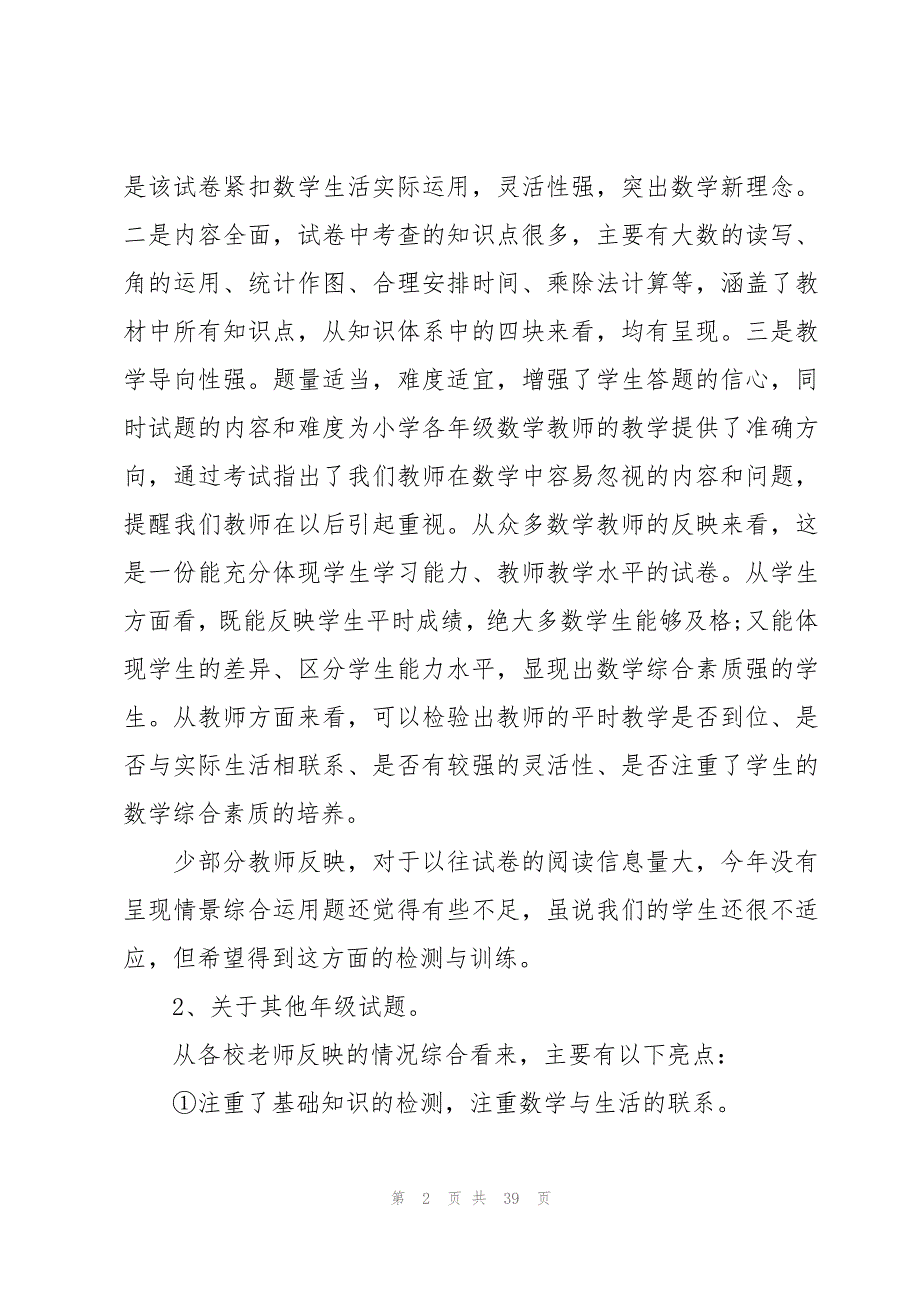 是该试卷紧扣数学生活实际运用，灵活性强，突出数学新理念。
二是内容全面，试卷中考查的知识点很多，主要有大数的读写、
角的运用、统计作图、合理安排时间、乘除法计算等，涵盖了教
材中所有知识点，从知识体系中的四块来看，均有呈现。三是教
学导向性强。题量适当，难度适宜，增强了学生答题的信心，同
时试题的内容和难度为小学各年级数学教师的教学提供了准确方
向，通过考试指出了我们教师在数学中容易忽视的内容和问题，
提醒我们教师在以后引起重视。从众多数学教师的反映来看，这
是一份能充分体现学生学习能力、教师教学水平的试卷。从学生
方面看，既能反映学生平时成绩，绝大多数学生能够及格;又能体
现学生的差异、区分学生能力水平，显现出数学综合素质强的学
生。从教师方面来看，可以检验出教师的平时教学是否到位、是
否与实际生活相联系、是否有较强的灵活性、是否注重了学生的
数学综合素质的培养。
少部分教师反映，对于以往试卷的阅读信息量大，今年没有
呈现情景综合运用题还觉得有些不足，虽说我们的学生还很不适
应，但希望得到这方面的检测与训练。
2、关于其他年级试题。
从各校老师反映的情况综合看来，主要有以下亮点：
①注重了基础知识的检测，注重数学与生活的联系。
第 2 页 共 39 页